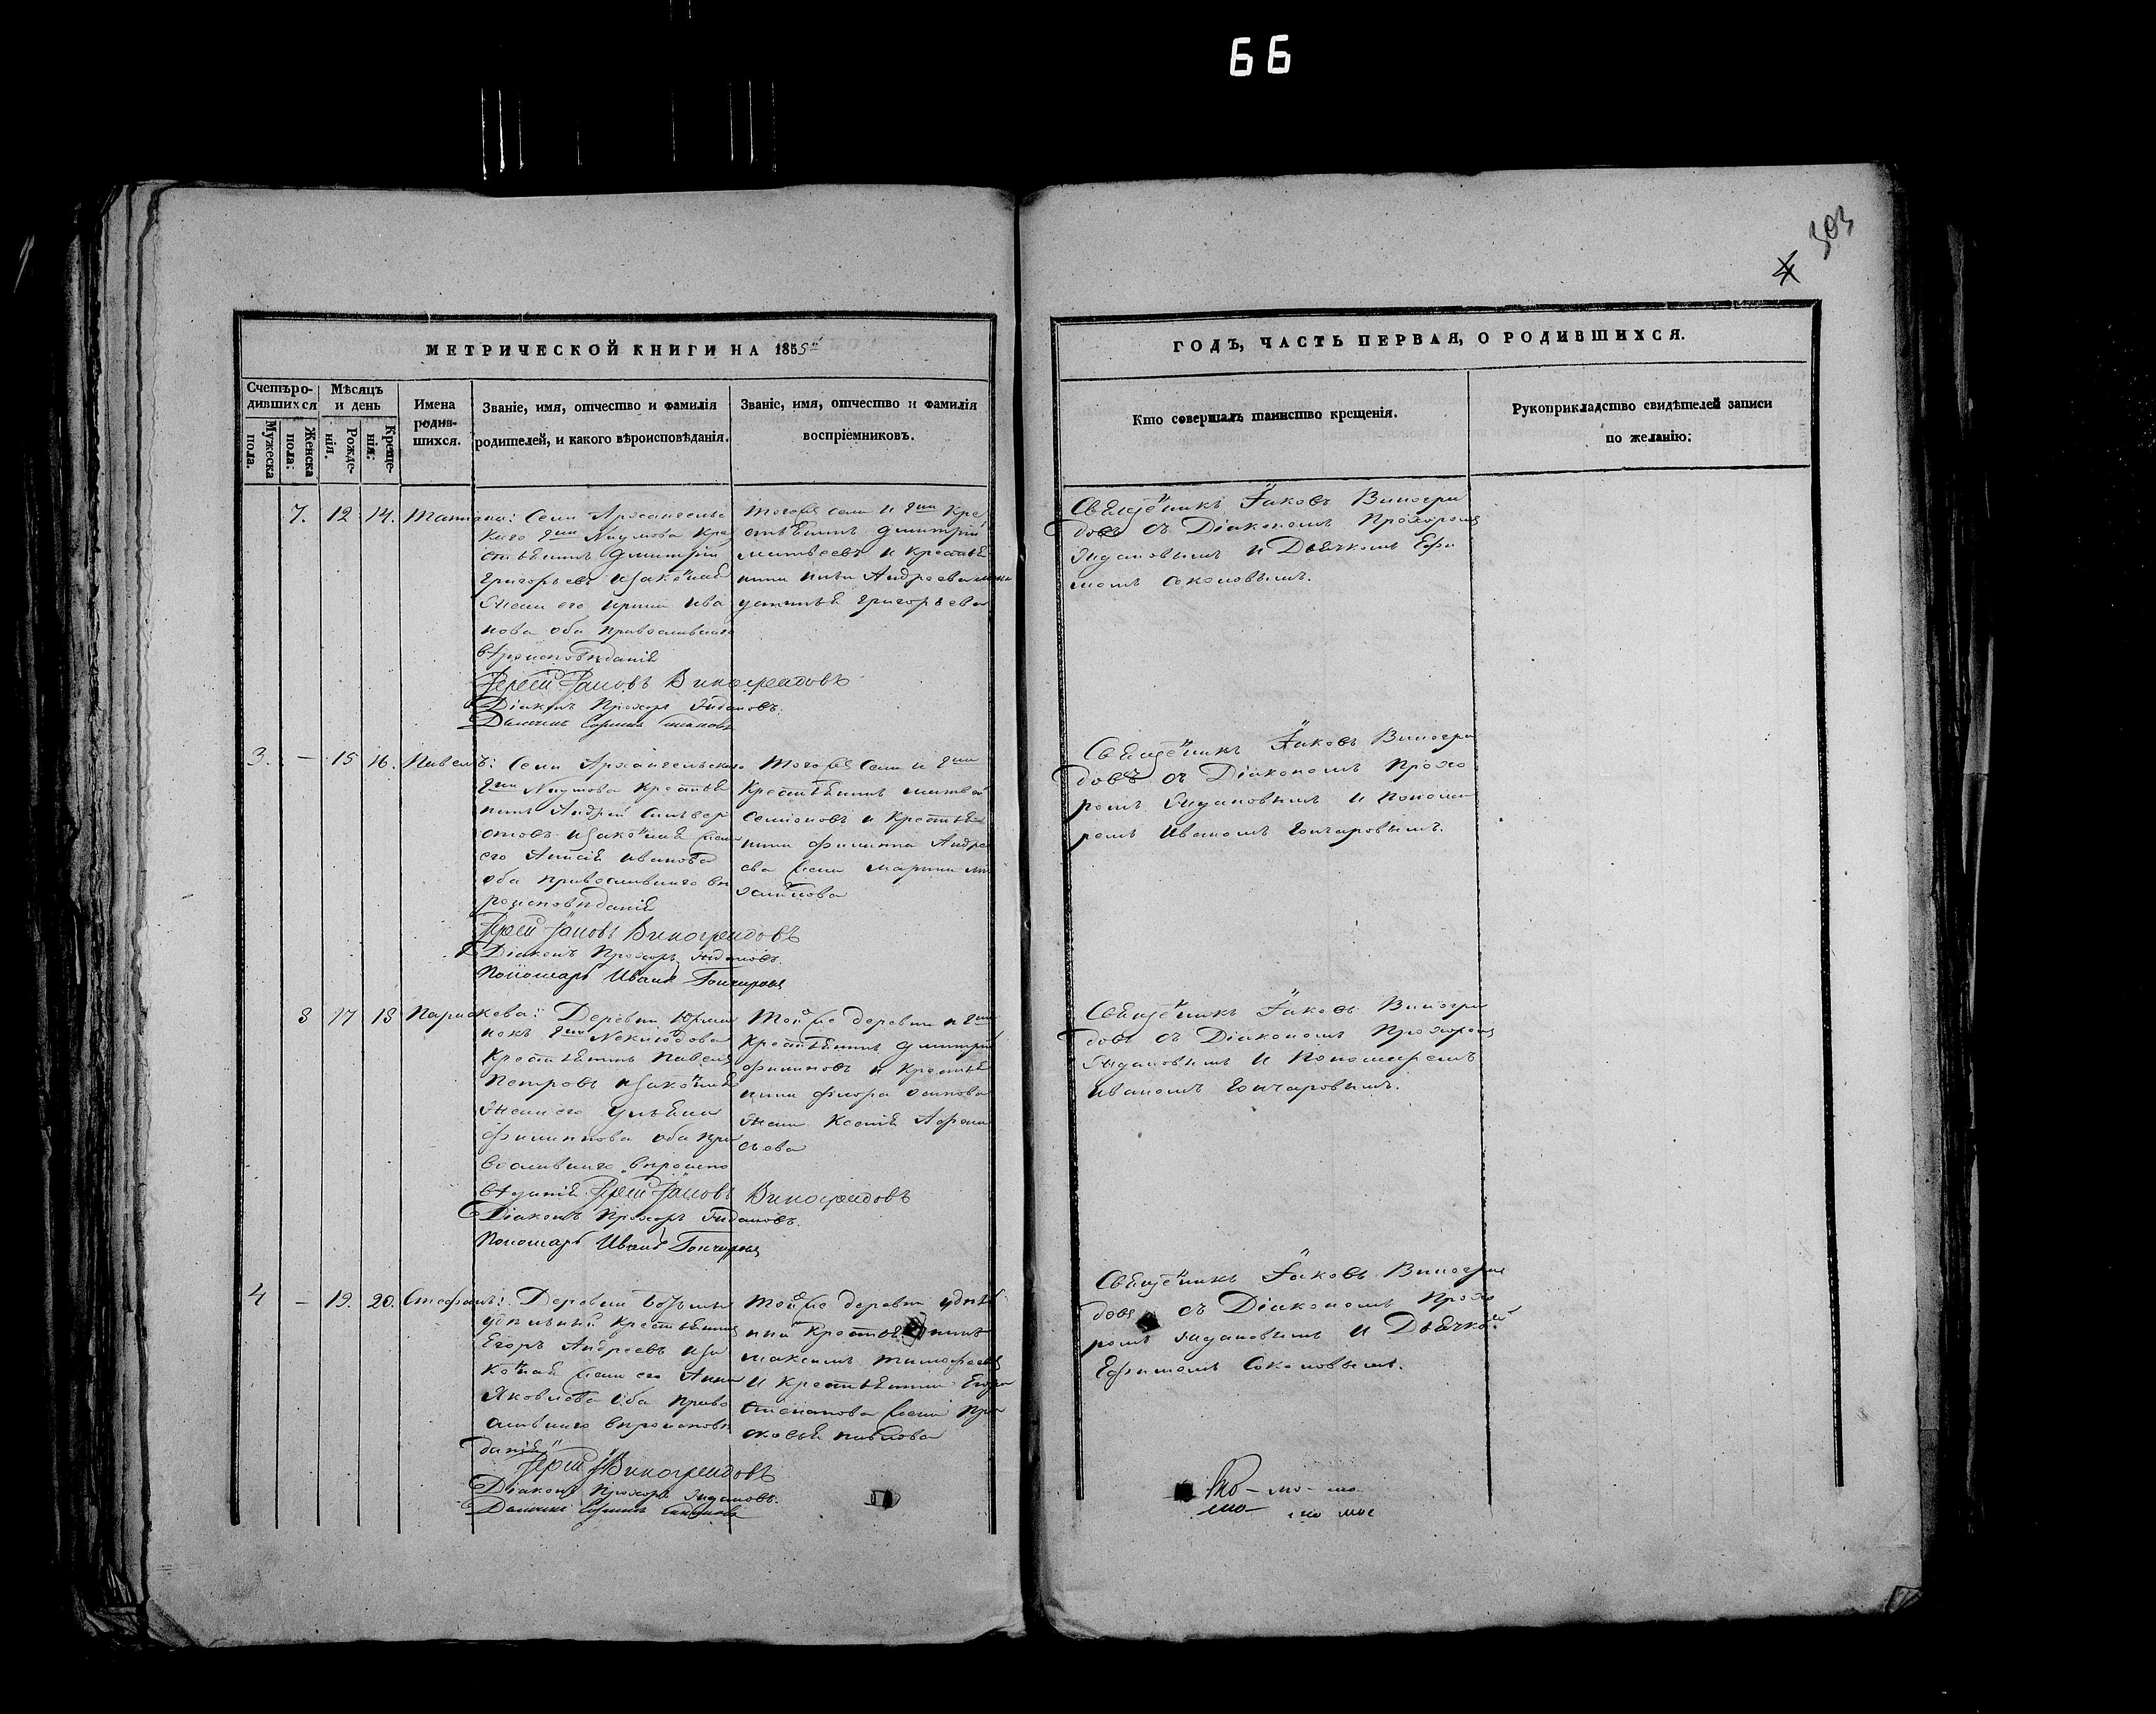 66
303
4
МЕТРИЧЕСКОЙ КНИГИ НА 1855й
Счетъ ро-
дившихся
Мужеска пола.
Женска пола.
Мѣсяцъ
и день
Рожде-
нія.
Креще-
нія.
Имена
родив-
шихся.
Званіе, имя, отчество и фамилія
родителей, и какого вѣроисповѣданія.
Званіе, имя, отчество и фамилія
воспріемниковъ.
ГОДЪ, ЧАСТЬ ПЕРВАЯ, О РОДИВШИХСЯ.
Кто совершалъ таинство крещенія.
Рукоприкладство свидѣтелей записи
по желанію.
7. 12 14. Татiана:
Села Архангельс
каго Гжи Наумова Кре
стьянинъ Дмитрій
Григорьевъ и законная
жена его Ирина Ива
нова оба православнаго
вѣроисповѣданія
Іерей Іаковъ Виноградовъ
Діаконъ Прохоръ Ждановъ.
Тогоже села и Гжи Кре
стьянинъ Дмитрій
Матвеевъ и крестья
нина Андреева жена
Григорьева
Священникъ Іаковъ Виногра
довъ съ Діакономъ Прохоромъ
Ждановымъ и Дьячкомъ Ефи
момъ Соколовымъ.
3. — 15 16. Павелъ:
Села Архангельскаго
Гжи Наумова Крестья
нинъ Андрей Сильвер
стовъ и законная жена
его Анисія Иванова
оба православнаго вѣ
роисповѣданія
Іерей Іаковъ Виноградовъ
Діаконъ Прохоръ Ждановъ.
Пономарь Иванъ Гончаровъ
Тогоже села и Гжи
Крестьянинъ Матвей
Семіоновъ и Крестья
нина Филиппа Андре
ева жена Марина Ми
хайлова
Священникъ Іаковъ Виногра
довъ съ Діакономъ Прохо
ромъ Ждановымъ и Понома
ремъ Иваномъ Гончаровымъ.
8 17 18 Параскева:
Деревни
Гжи Неклюдова
Крестьянинъ Павелъ
Петровъ и законная
жена его Ульяна
Филиппова оба пра
вославнаго вѣроиспо
вѣданія Іерей Іаковъ Виноградовъ
Діаконъ Прохоръ Ждановъ.
Пономарь Иванъ Гончаровъ
Тойже деревни и Гжи
Крестьянинъ Дмитрій
Филиповъ и Крестья
нина Фіора Осипова
жена Ксенія Афона
сьева
Священникъ Іаковъ Виногра
довъ съ Діакономъ Прохоромъ
Ждановымъ и Пономаремъ
Иваномъ Гончаровымъ.
4 — 19. 20. Стефанъ:
Деревни
удѣльный Крестьянинъ
Егоръ Андреевъ и за
конная жена его Анна
Яковлева оба право
славнаго вѣроисповѣ
данія
Іерей І Виноградовъ
Діаконъ Прохоръ Ждановъ.
Тойже деревни удѣль
ный Крестьянинъ
Максимъ Тимофеевъ
и Крестьянина Егора
Степанова жена Пра
сковья Павлова
Священникъ Іаковъ Виногра
довъ съ Діакономъ Прохо
ромъ Ждановымъ и Дьячкомъ
Ефимомъ Соколовымъ.